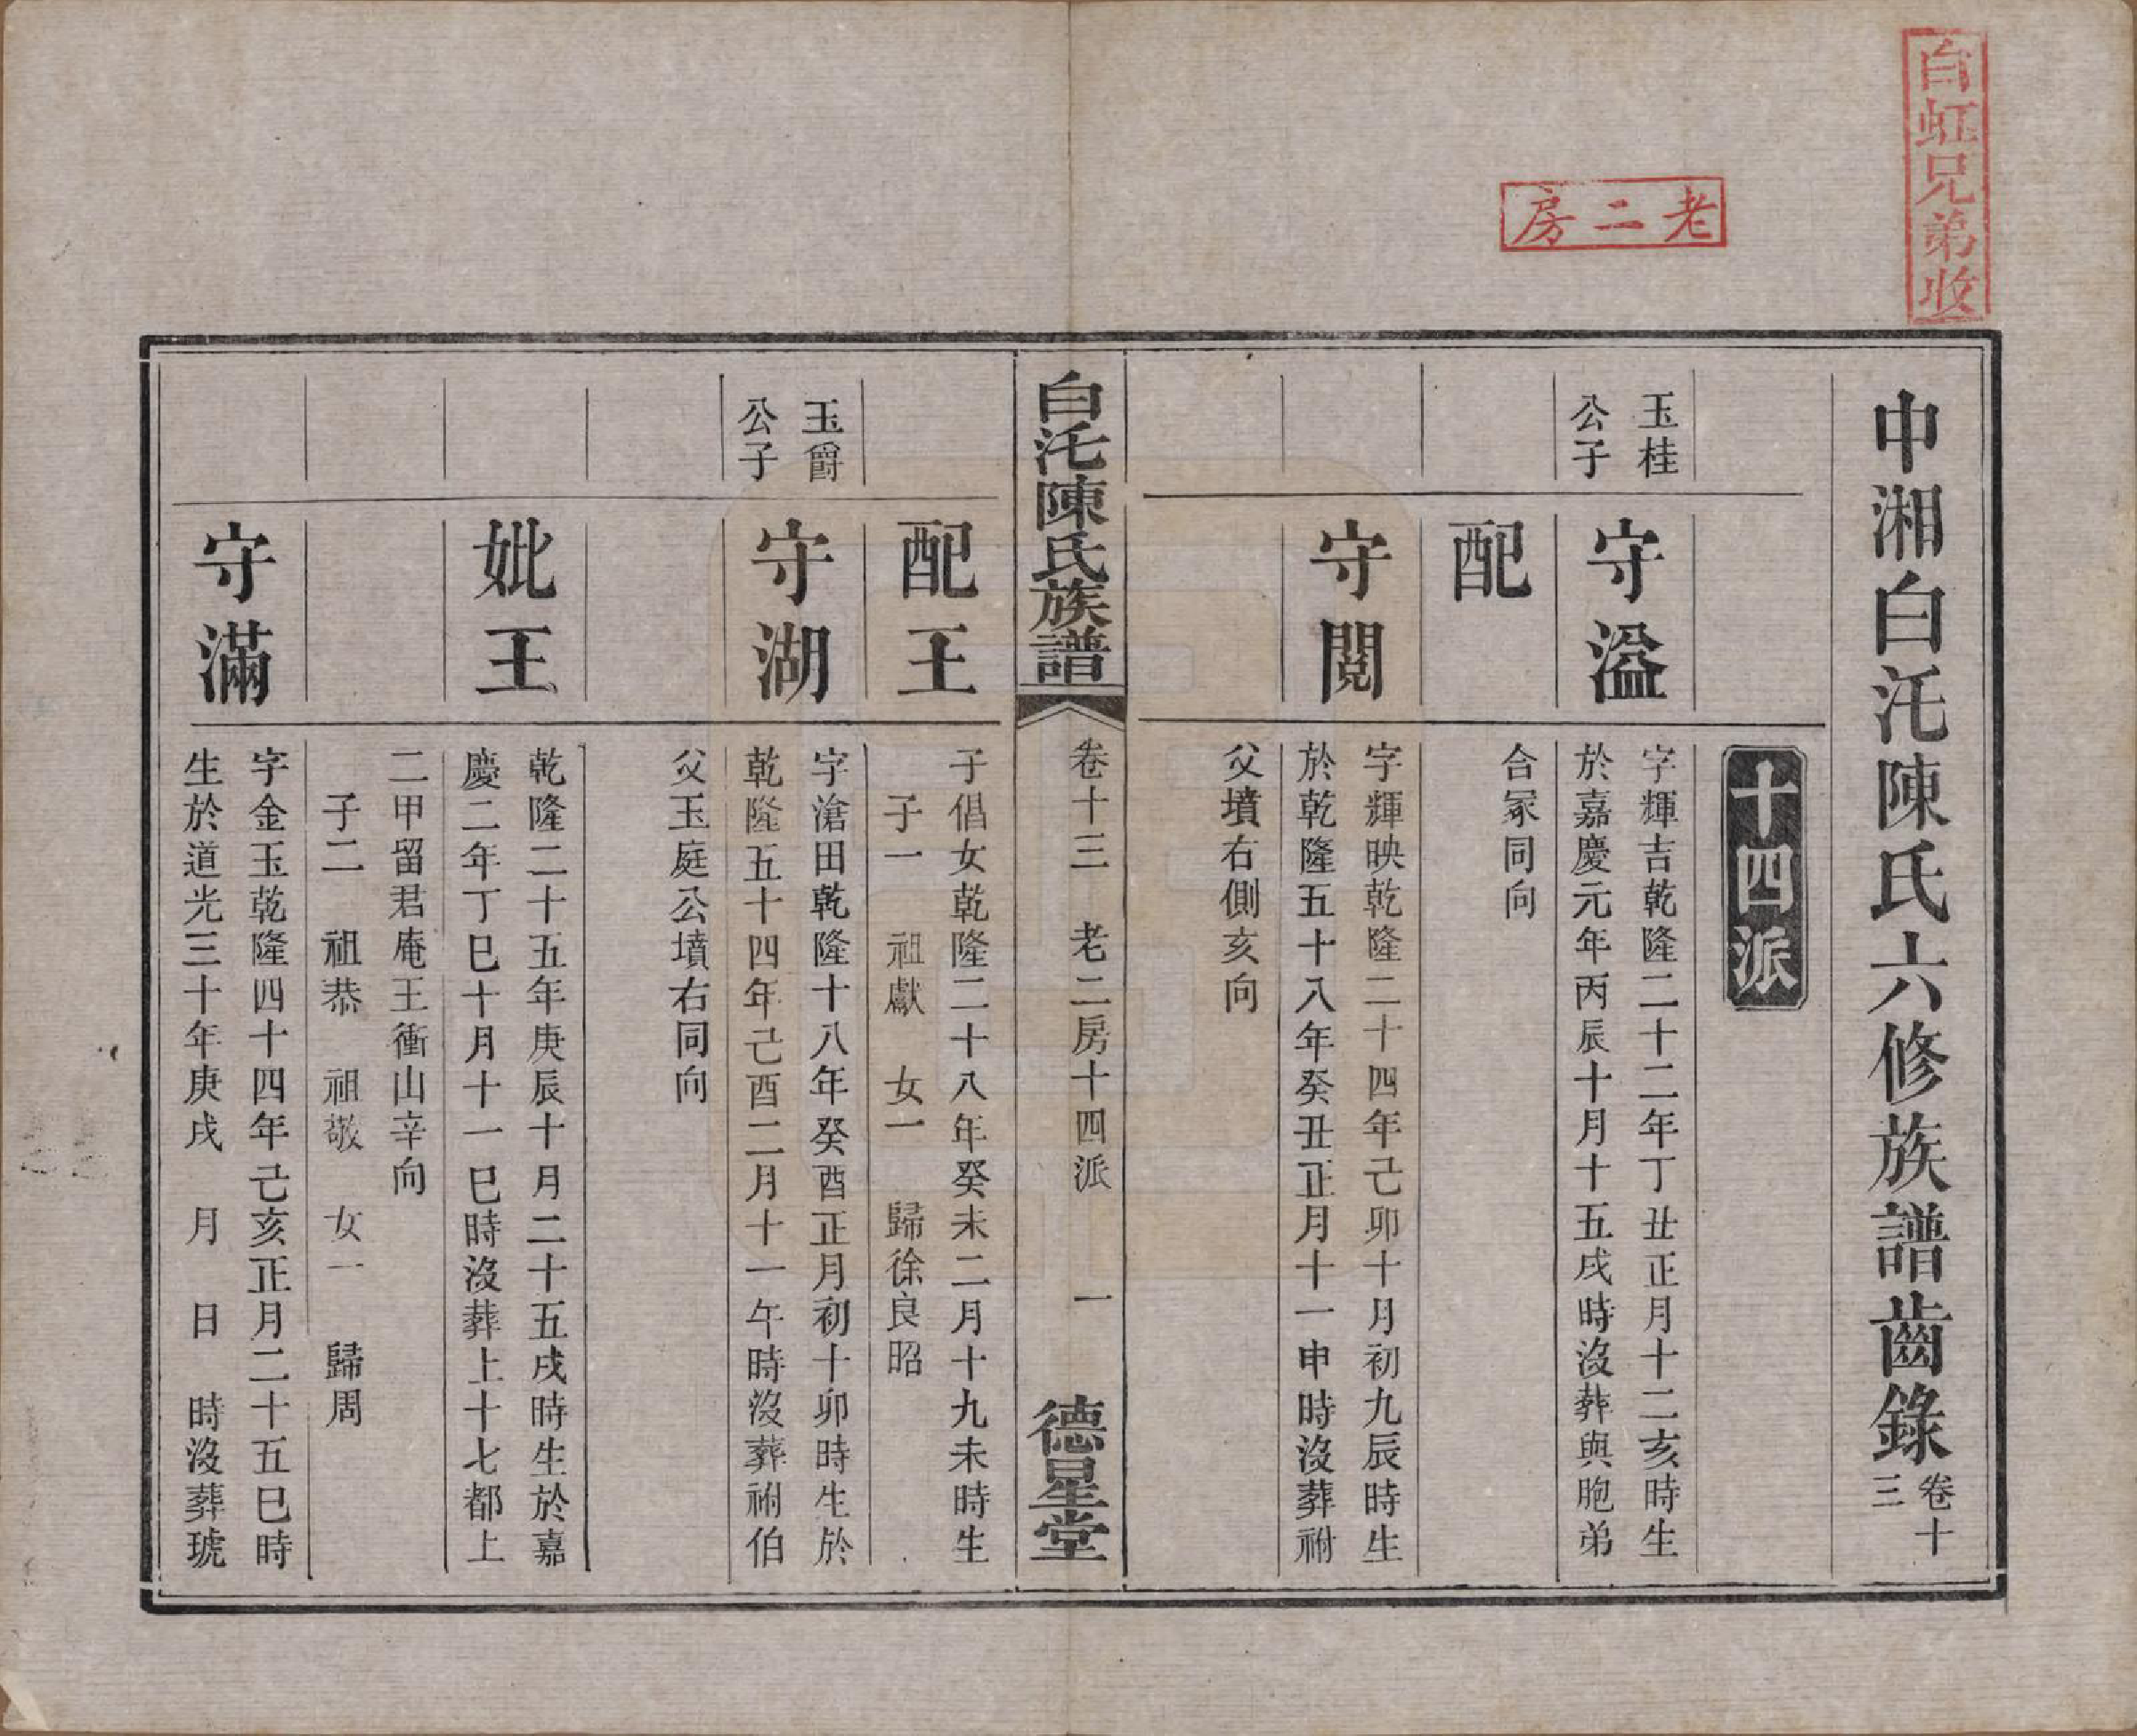 白虹兄弟收
老二房
中湘白沰陳氏六修族譜齒錄 卷十三
十四派
玉桂公子
守溢
字輝吉乾隆二十二年丁丑正月十二亥時生
於嘉慶元年丙辰十月十五戌時沒葬與胞弟
合冢同向
配
守閱
字輝映乾隆二十四年己卯十月初九辰時生
於乾隆五十八年癸丑正月十一申時沒葬祔
父墳右側亥向
白沰陳氏族譜
卷十三 老二房十四派 一
德星堂
配王
子倡女乾隆二十八年癸未二月十九未時生
子一 祖獻 女一 歸徐良昭
玉爵公子
守湖
字滄田乾隆十八年癸酉正月初十卯時生於
乾隆五十四年己酉二月十一午時沒葬祔伯
父玉庭公墳右同向
妣王
乾隆二十五年庚辰十月二十五戌時生於嘉
慶二年丁巳十月十一巳時沒葬上十七都上
二甲留君庵王衝山辛向
子二 祖恭 祖敬 女一 歸周
守滿
字金玉乾隆四十四年己亥正月二十五巳時
生於道光三十年庚戌 月 日 時沒葬琥